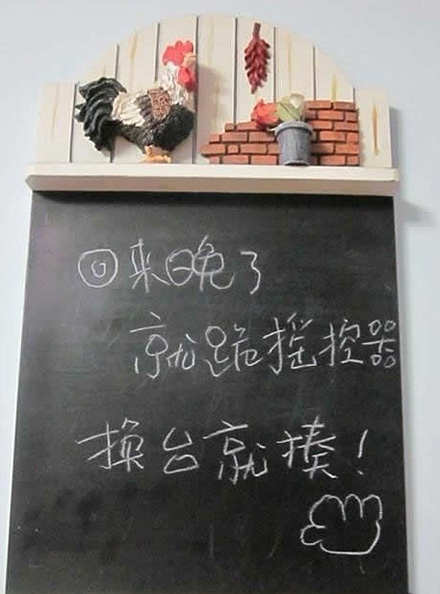 回来晚了
就跪摇控器
换台就揍！